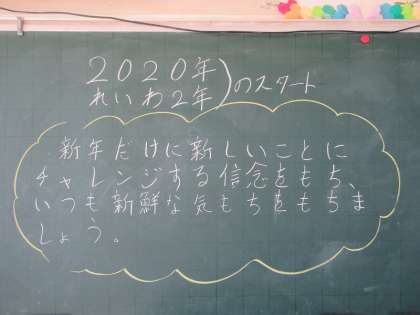 2020年
れいわ2年)のスタート
新年だけに新しいことに
チャレンジする信念をもち、
いつも新鮮な気もちをもちま
しょう。